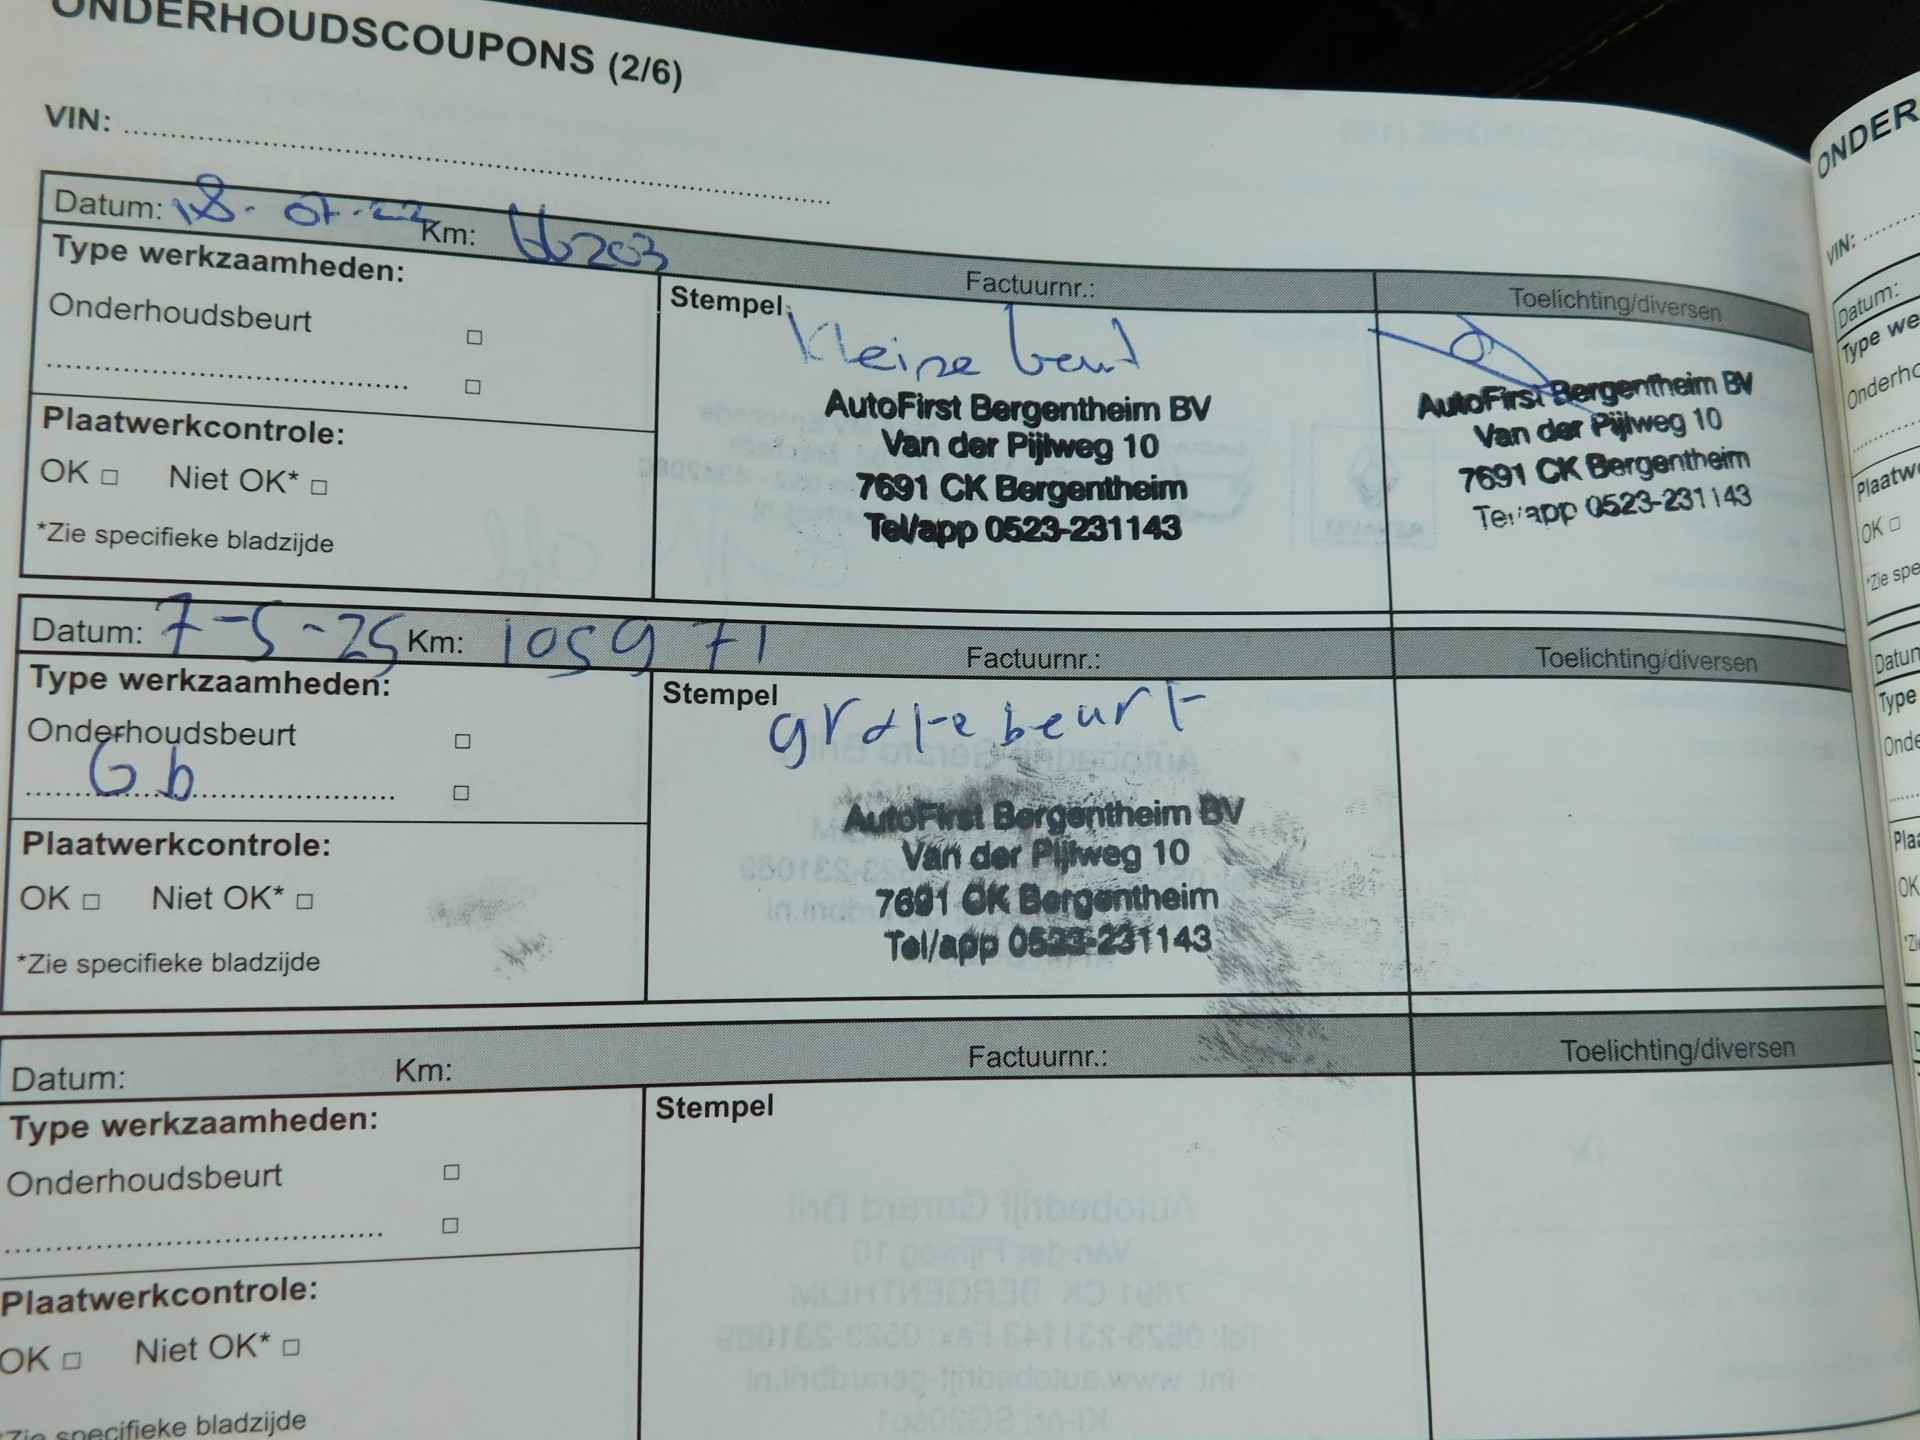 ONDERHOUDSCOUPONS (2/6)
VIN:
Datum: 18-07-22 Km: 66203 Factuurnr.: Toelichting/diversen
Type werkzaamheden:
Onderhoudsbeurt □
□
Plaatwerkcontrole:
OK □ Niet OK* □
*Zie specifieke bladzijde
Stempel
kleine beurt
AutoFirst Bergentheim BV
Van der Pijlweg 10
7691 CK Bergentheim
Tel/app 0523-231143
AutoFirst Bergentheim BV
Van der Pijlweg 10
7691 CK Bergentheim
Tel/app 0523-231143
Datum: 7-5-25 Km: 105971 Factuurnr.: Toelichting/diversen
Type werkzaamheden:
Onderhoudsbeurt □
Gb □
Plaatwerkcontrole:
OK □ Niet OK* □
*Zie specifieke bladzijde
Stempel
grote beurt
AutoFirst Bergentheim BV
Van der Pijlweg 10
7691 CK Bergentheim
Tel/app 0523-231143
Datum: Km: Factuurnr.: Toelichting/diversen
Type werkzaamheden:
Onderhoudsbeurt □
□
Plaatwerkcontrole:
OK □ Niet OK* □
*Zie specifieke bladzijde
Stempel
VIN:
Datum: